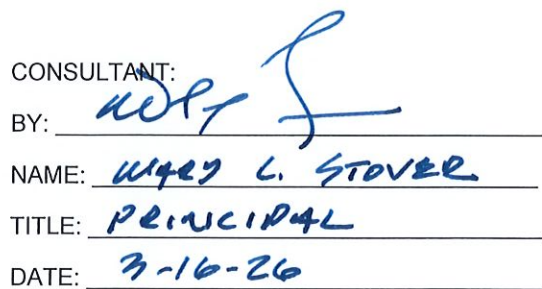 CONSULTANT:
BY:
NAME: MARY L. STOVER
TITLE: PRINCIPAL
DATE: 3-16-26